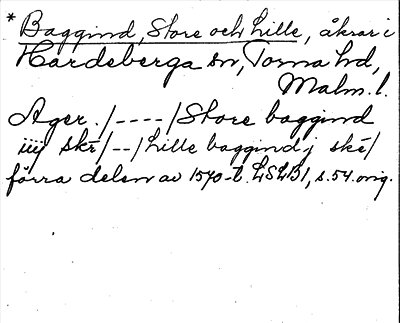 * Baggind, Store och Lille, åkrar i
Hardeberga sn, Torna hd,
Malm. l.
Ager. /----/ Store baggind
iiij skē/--/ Lille baggind j skē/
förra delen av 1570-t. LSLB1, s. 54. orig.